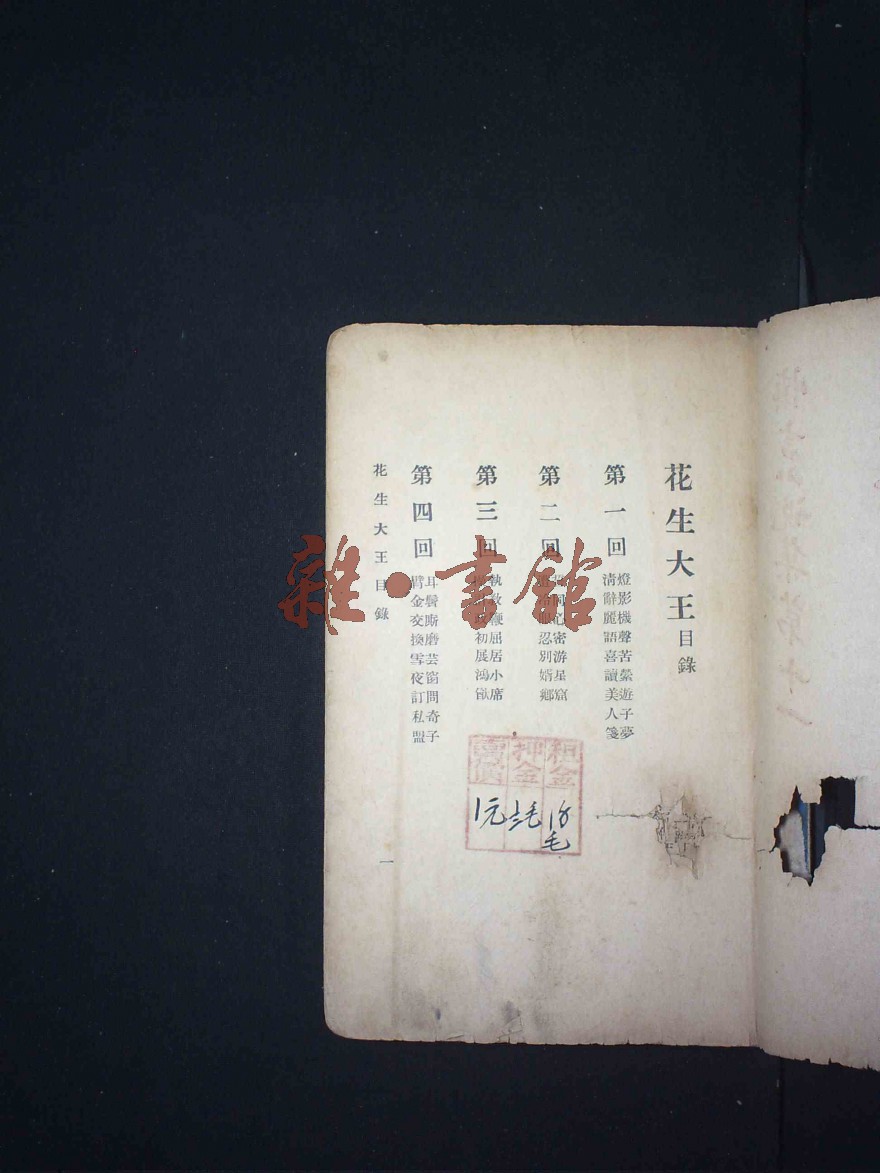 花生大王目錄
第一回
燈影機聲苦縈遊子夢
清辭麗語喜讀美人箋
第二回
密游星窟
忍別婿鄉
第三回
執教鞭屈居小席
初展鴻猷
第四回
耳鬢廝磨芸窗問奇子
臂金交換雪夜訂私盟
花生大王目錄
一
租金
押金
賣價
1元
雜·書館